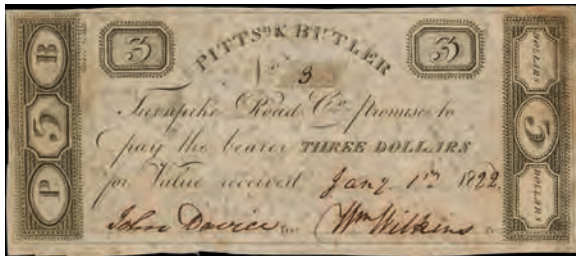 3 3
PITTSGH & BUTLER
No. 3
Turnpike Road Co. promises to
pay the bearer THREE DOLLARS
for Value received Jany. 1st 1822.
Wm Wilkins
P B
DOLLARS 3 DOLLARS